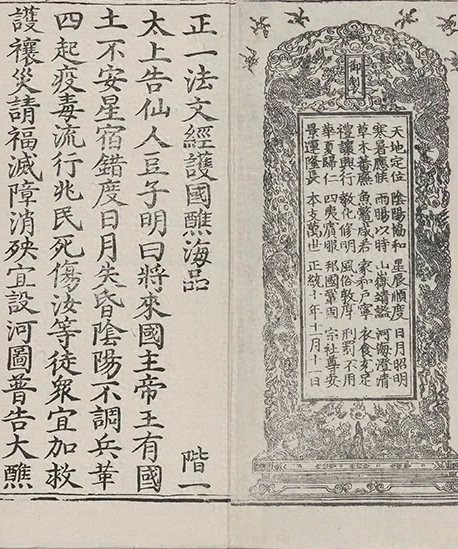 御製
天地定位 陰陽協和 星辰順度 日月昭明
寒暑應候 雨暘以時 山嶽靖謐 河海澄清
草木蕃廡 魚鱉咸若 家和戶寧 衣食充足
禮讓興行 敎化修明 風俗敦厚 刑罰不用
華夏歸仁 四夷賓服 邦國鞏固 宗社尊安
景運隆長 本支萬世 正統十年十一月十一日
正一法文經護國醮海品 階一
太上告仙人豆子明曰將來國主帝王有國
土不安星宿錯度日月失昏陰陽不調兵革
四起疫毒流行兆民死傷汝等徒衆宜加救
護禳災請福滅障消殃宜設河圖普告大醮